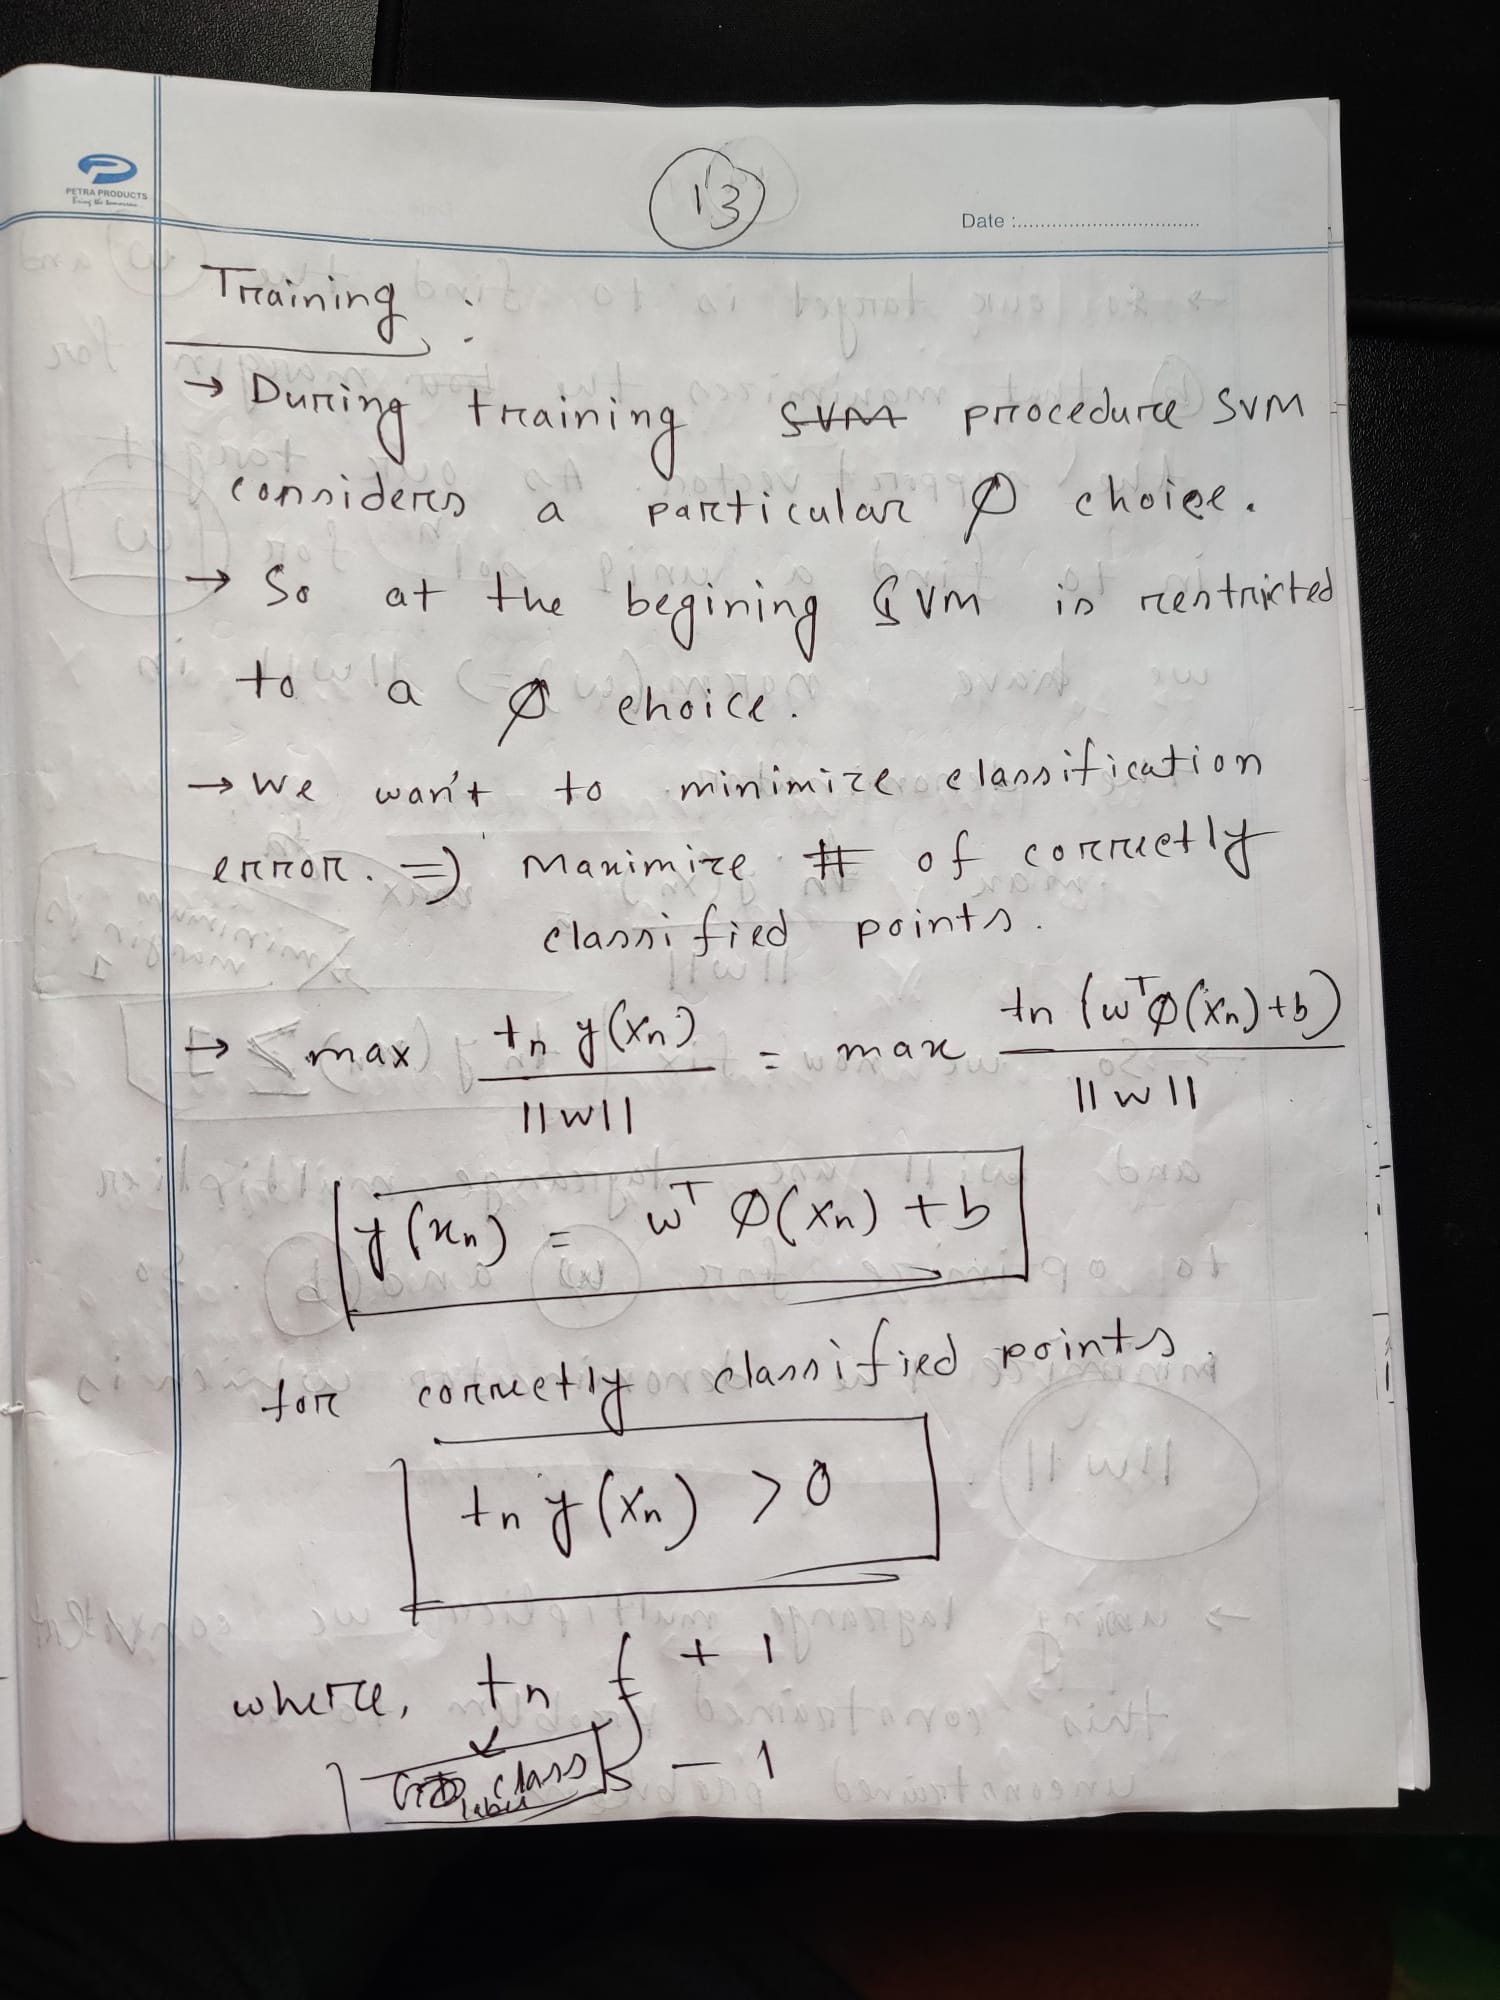 PETRA PRODUCTS
13
Date :
Training :
→ During training SVM procedure SVM
considers a particular Ø choice.
→ So at the begining SVM is restricted
to a Ø choice.
→ We wan't to minimize classification
error. ⇒ Maximize # of correctly
classified points.
→ max tn y(xn) / ||w|| = max tn (wᵀØ(xn)+b) / ||w||
y(xn) = wᵀ Ø(xn) + b
for correctly classified points.
tn y(xn) > 0
where, tn { + 1
class - 1
label